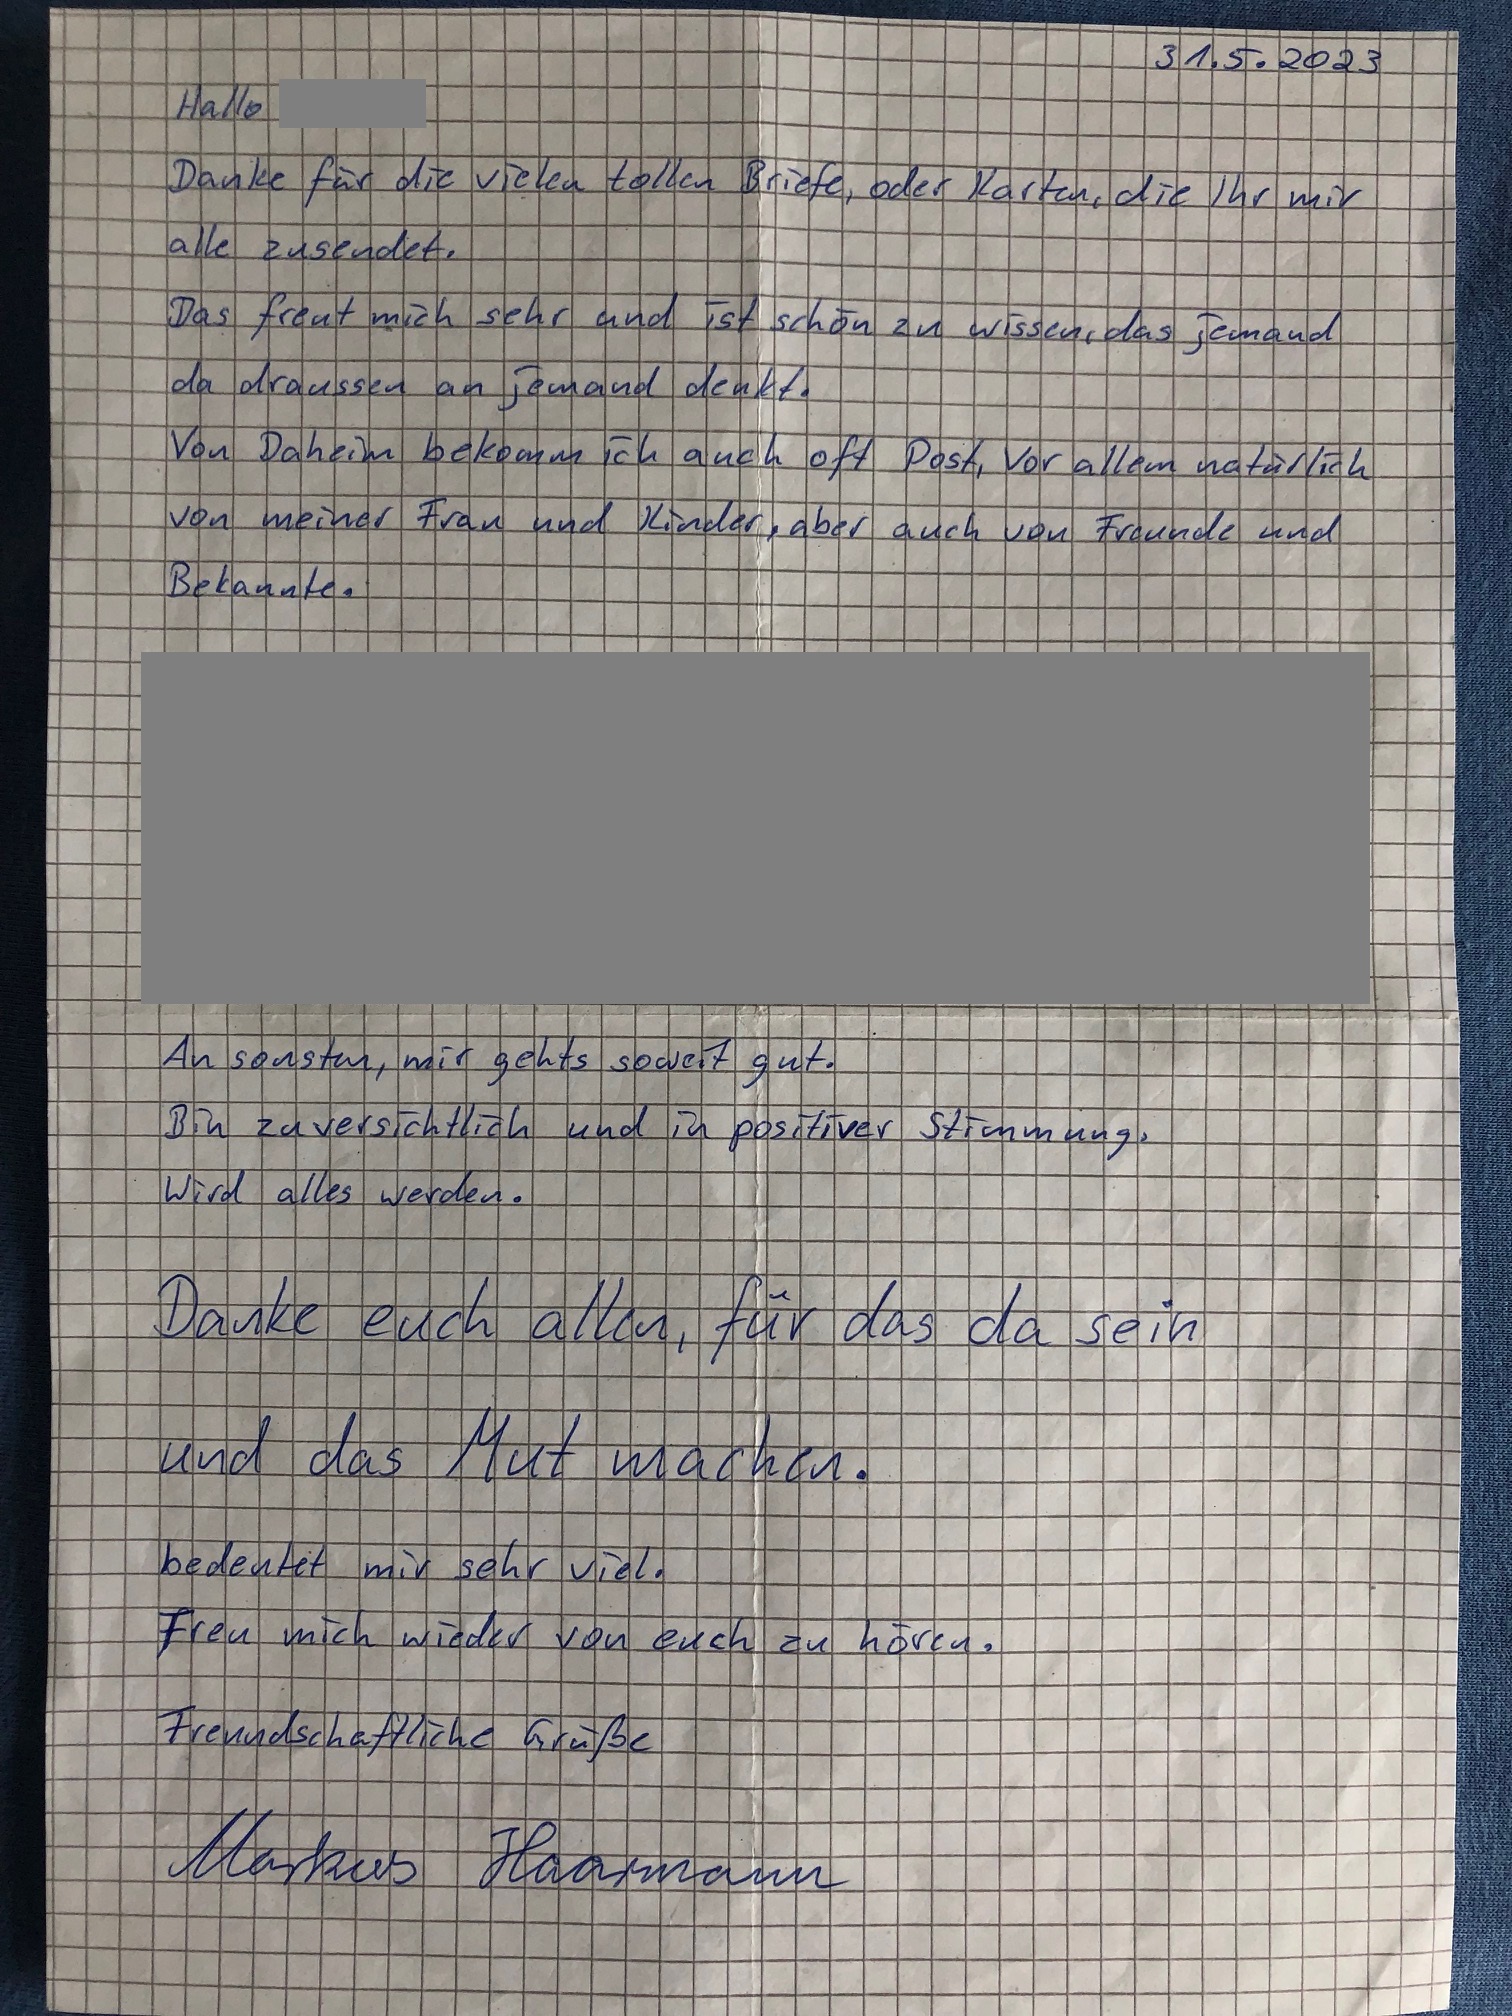 31.5.2023
Hallo
Danke für die vielen tollen Briefe, oder Karten, die Ihr mir
alle zusendet.
Das freut mich sehr und ist schön zu wissen, das jemand
da draussen an jemand denkt.
Von Daheim bekomm ich auch oft Post, vor allem natürlich
von meiner Frau und Kinder, aber auch von Freunde und
Bekannte.
An sonsten, mir gehts soweit gut.
Bin zuversichtlich und in positiver Stimmung.
Wird alles werden.
Danke euch allen, für das da sein
und das Mut machen.
bedeutet mir sehr viel.
Freu mich wieder von euch zu hören.
Freundschaftliche Grüße
Markus Haarmann